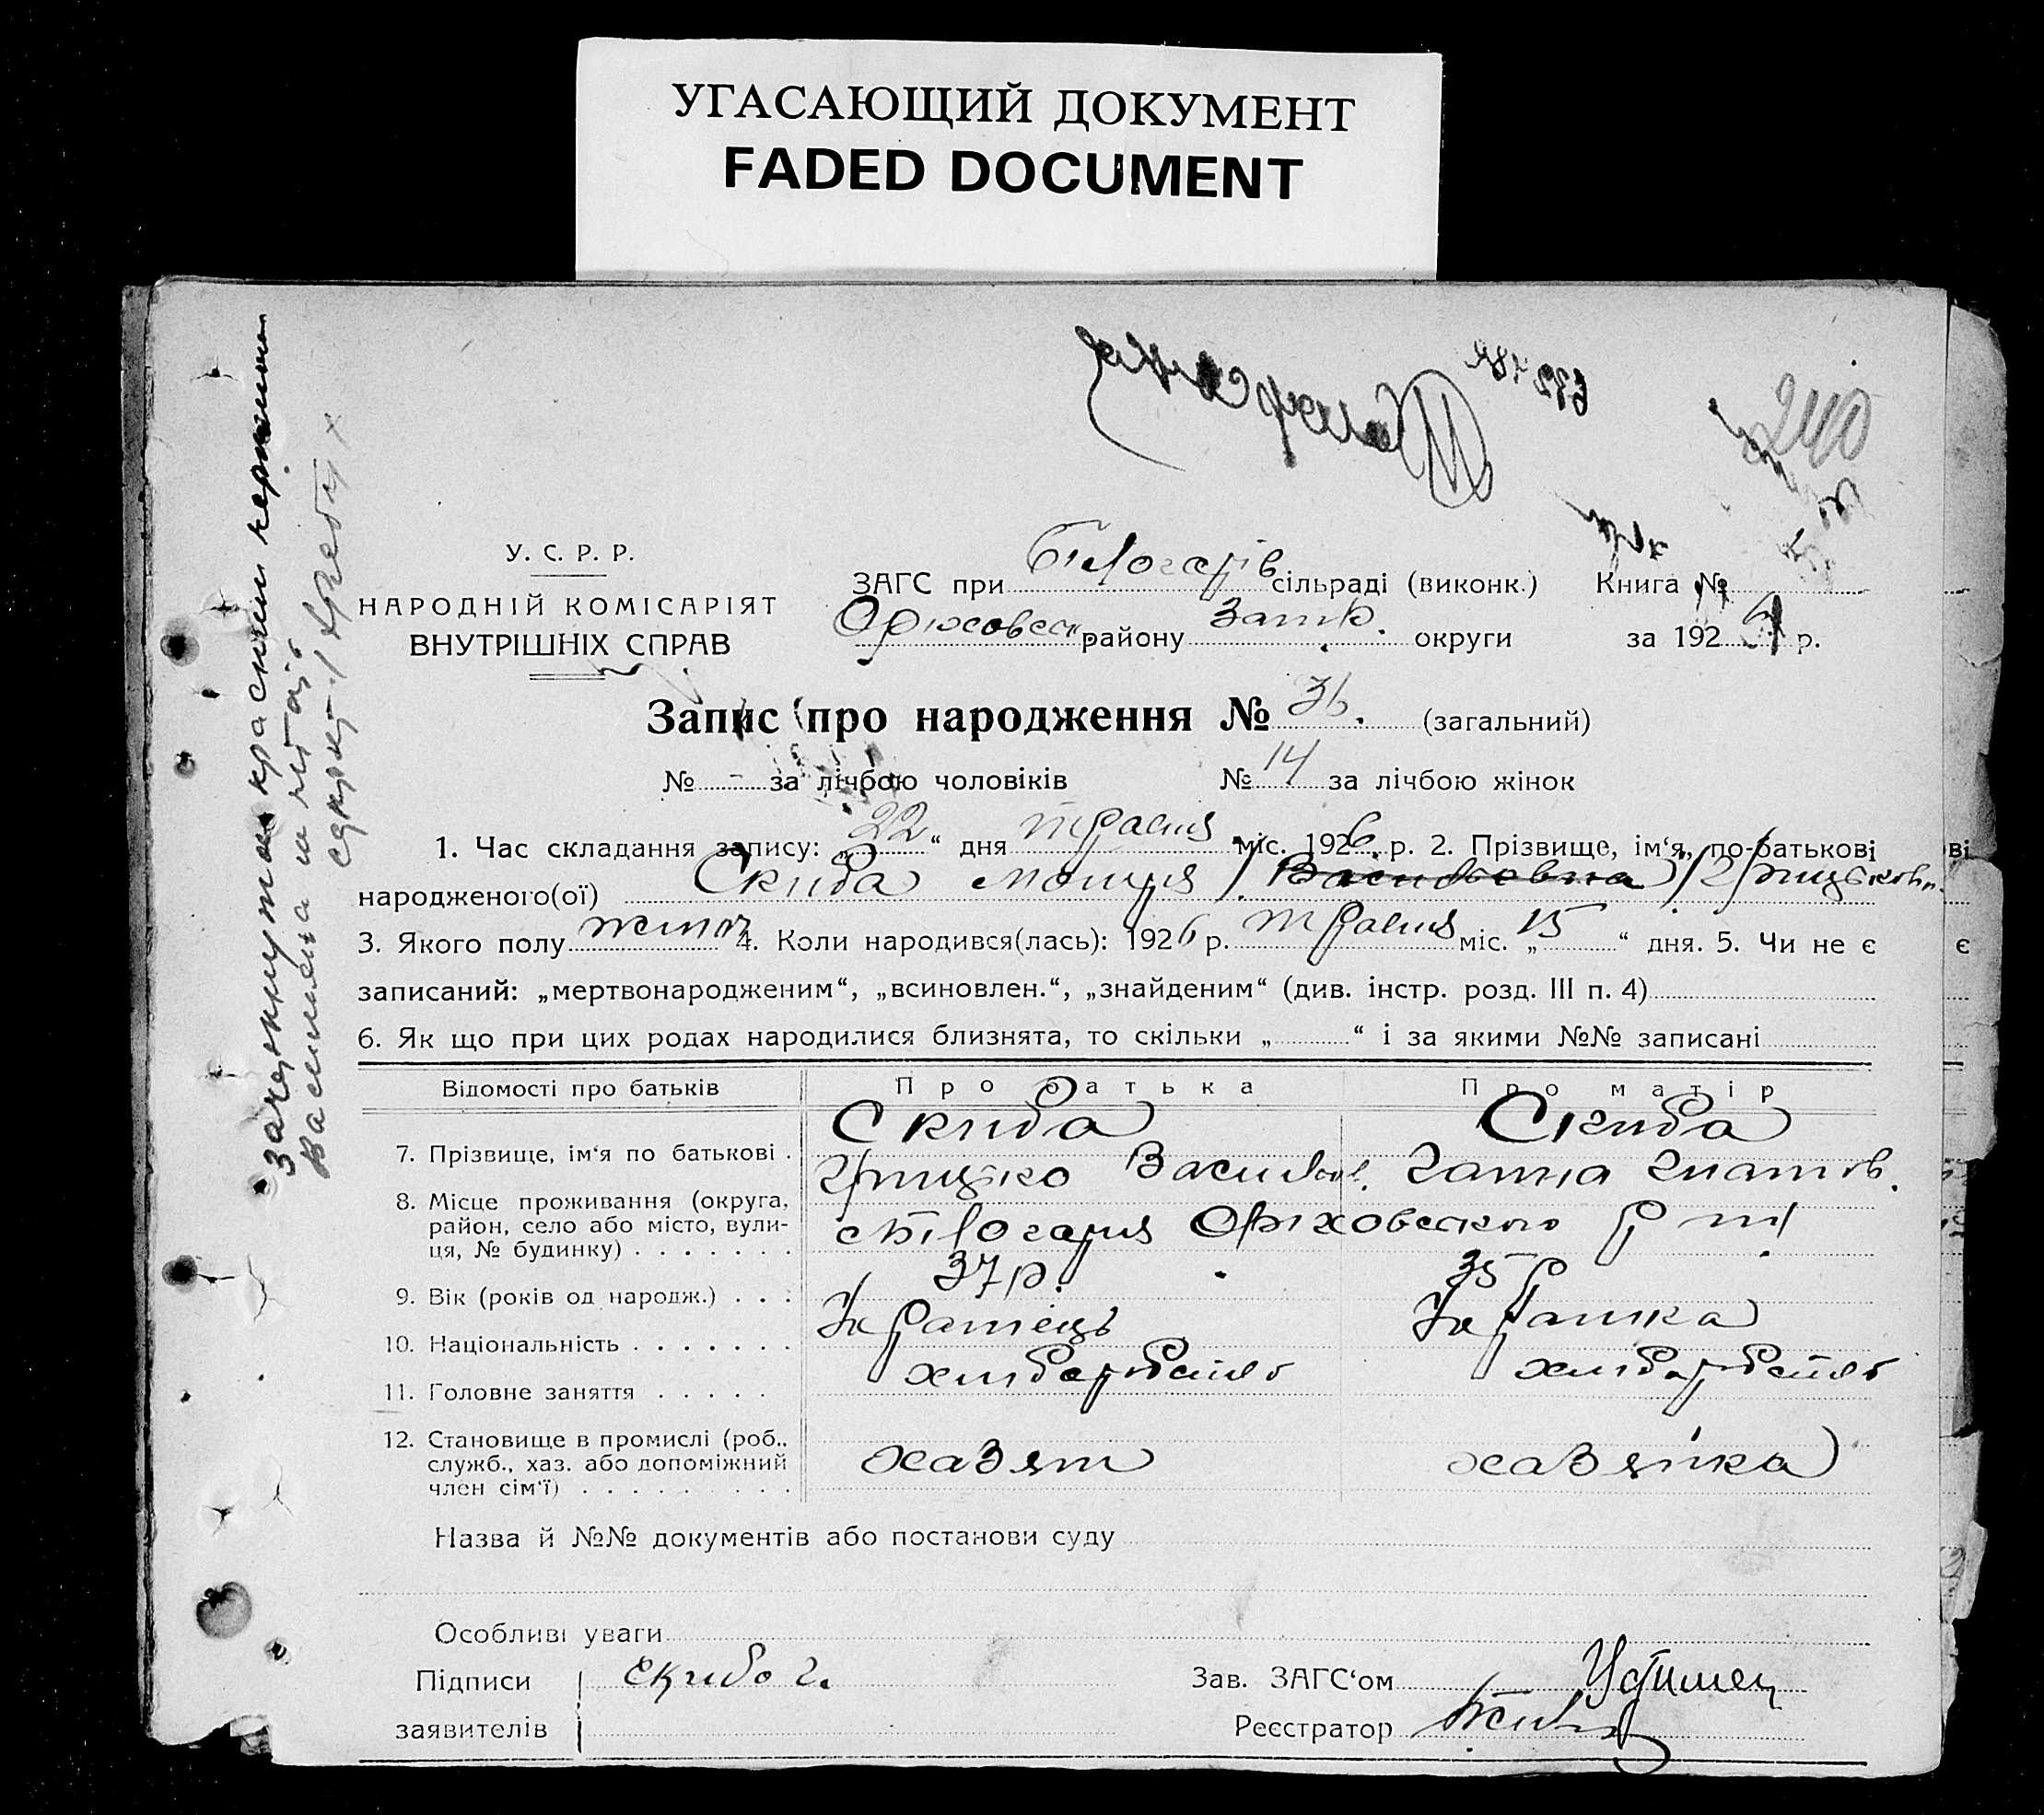 УГАСАЮЩИЙ ДОКУМЕНТ
FADED DOCUMENT
240
У. С. Р. Р.
НАРОДНІЙ КОМІСАРІЯТ
ВНУТРІШНІХ СПРАВ
ЗАГС при Білогарів сільраді (виконк.) Книга №
Оріховськ району Запор. округи за 192 р.
Запис про народження № 36. (загальний)
№ - за лічбою чоловіків № 14 за лічбою жінок
1. Час складання запису: „22“ дня травня міс. 1926 р. 2. Прізвище, ім‘я, по-батькові
народженого(ої) Скиба Марія /Васильовна/ Грицьковн.
3. Якого полу жіноч 4. Коли народився(лась): 1926 р. травня міс. „15“ дня. 5. Чи не є
записаний: „мертвонародженим“, „всиновлен.“, „знайденим“ (див. інстр. розд. III п. 4)
6. Як що при цих родах народилися близнята, то скільки „ “ і за якими №№ записані
Відомості про батьків Про батька Про матір
7. Прізвище, ім‘я по батькові . Скиба Грицько Васильов. Скиба Ганна Гнатов.
8. Місце проживання (округа, район, село або місто, вули-ця, № будинку) . . . . . . . Білогаря Оріховського р
9. Вік (років од народж.) . . . 37 р. 35 р
10. Національність . . . . . . . Українець Українка
11. Головне заняття . . . . . хліборобств хліборобств
12. Становище в промислі (роб., служб., хаз. або допоміжний член сім‘ї) . . . . . . . . . хазяїн хазяйка
Назва й №№ документів або постанови суду
Особливі уваги
Підписи Скиба Г. Зав. ЗАГС‘ом
заявителів Реєстратор